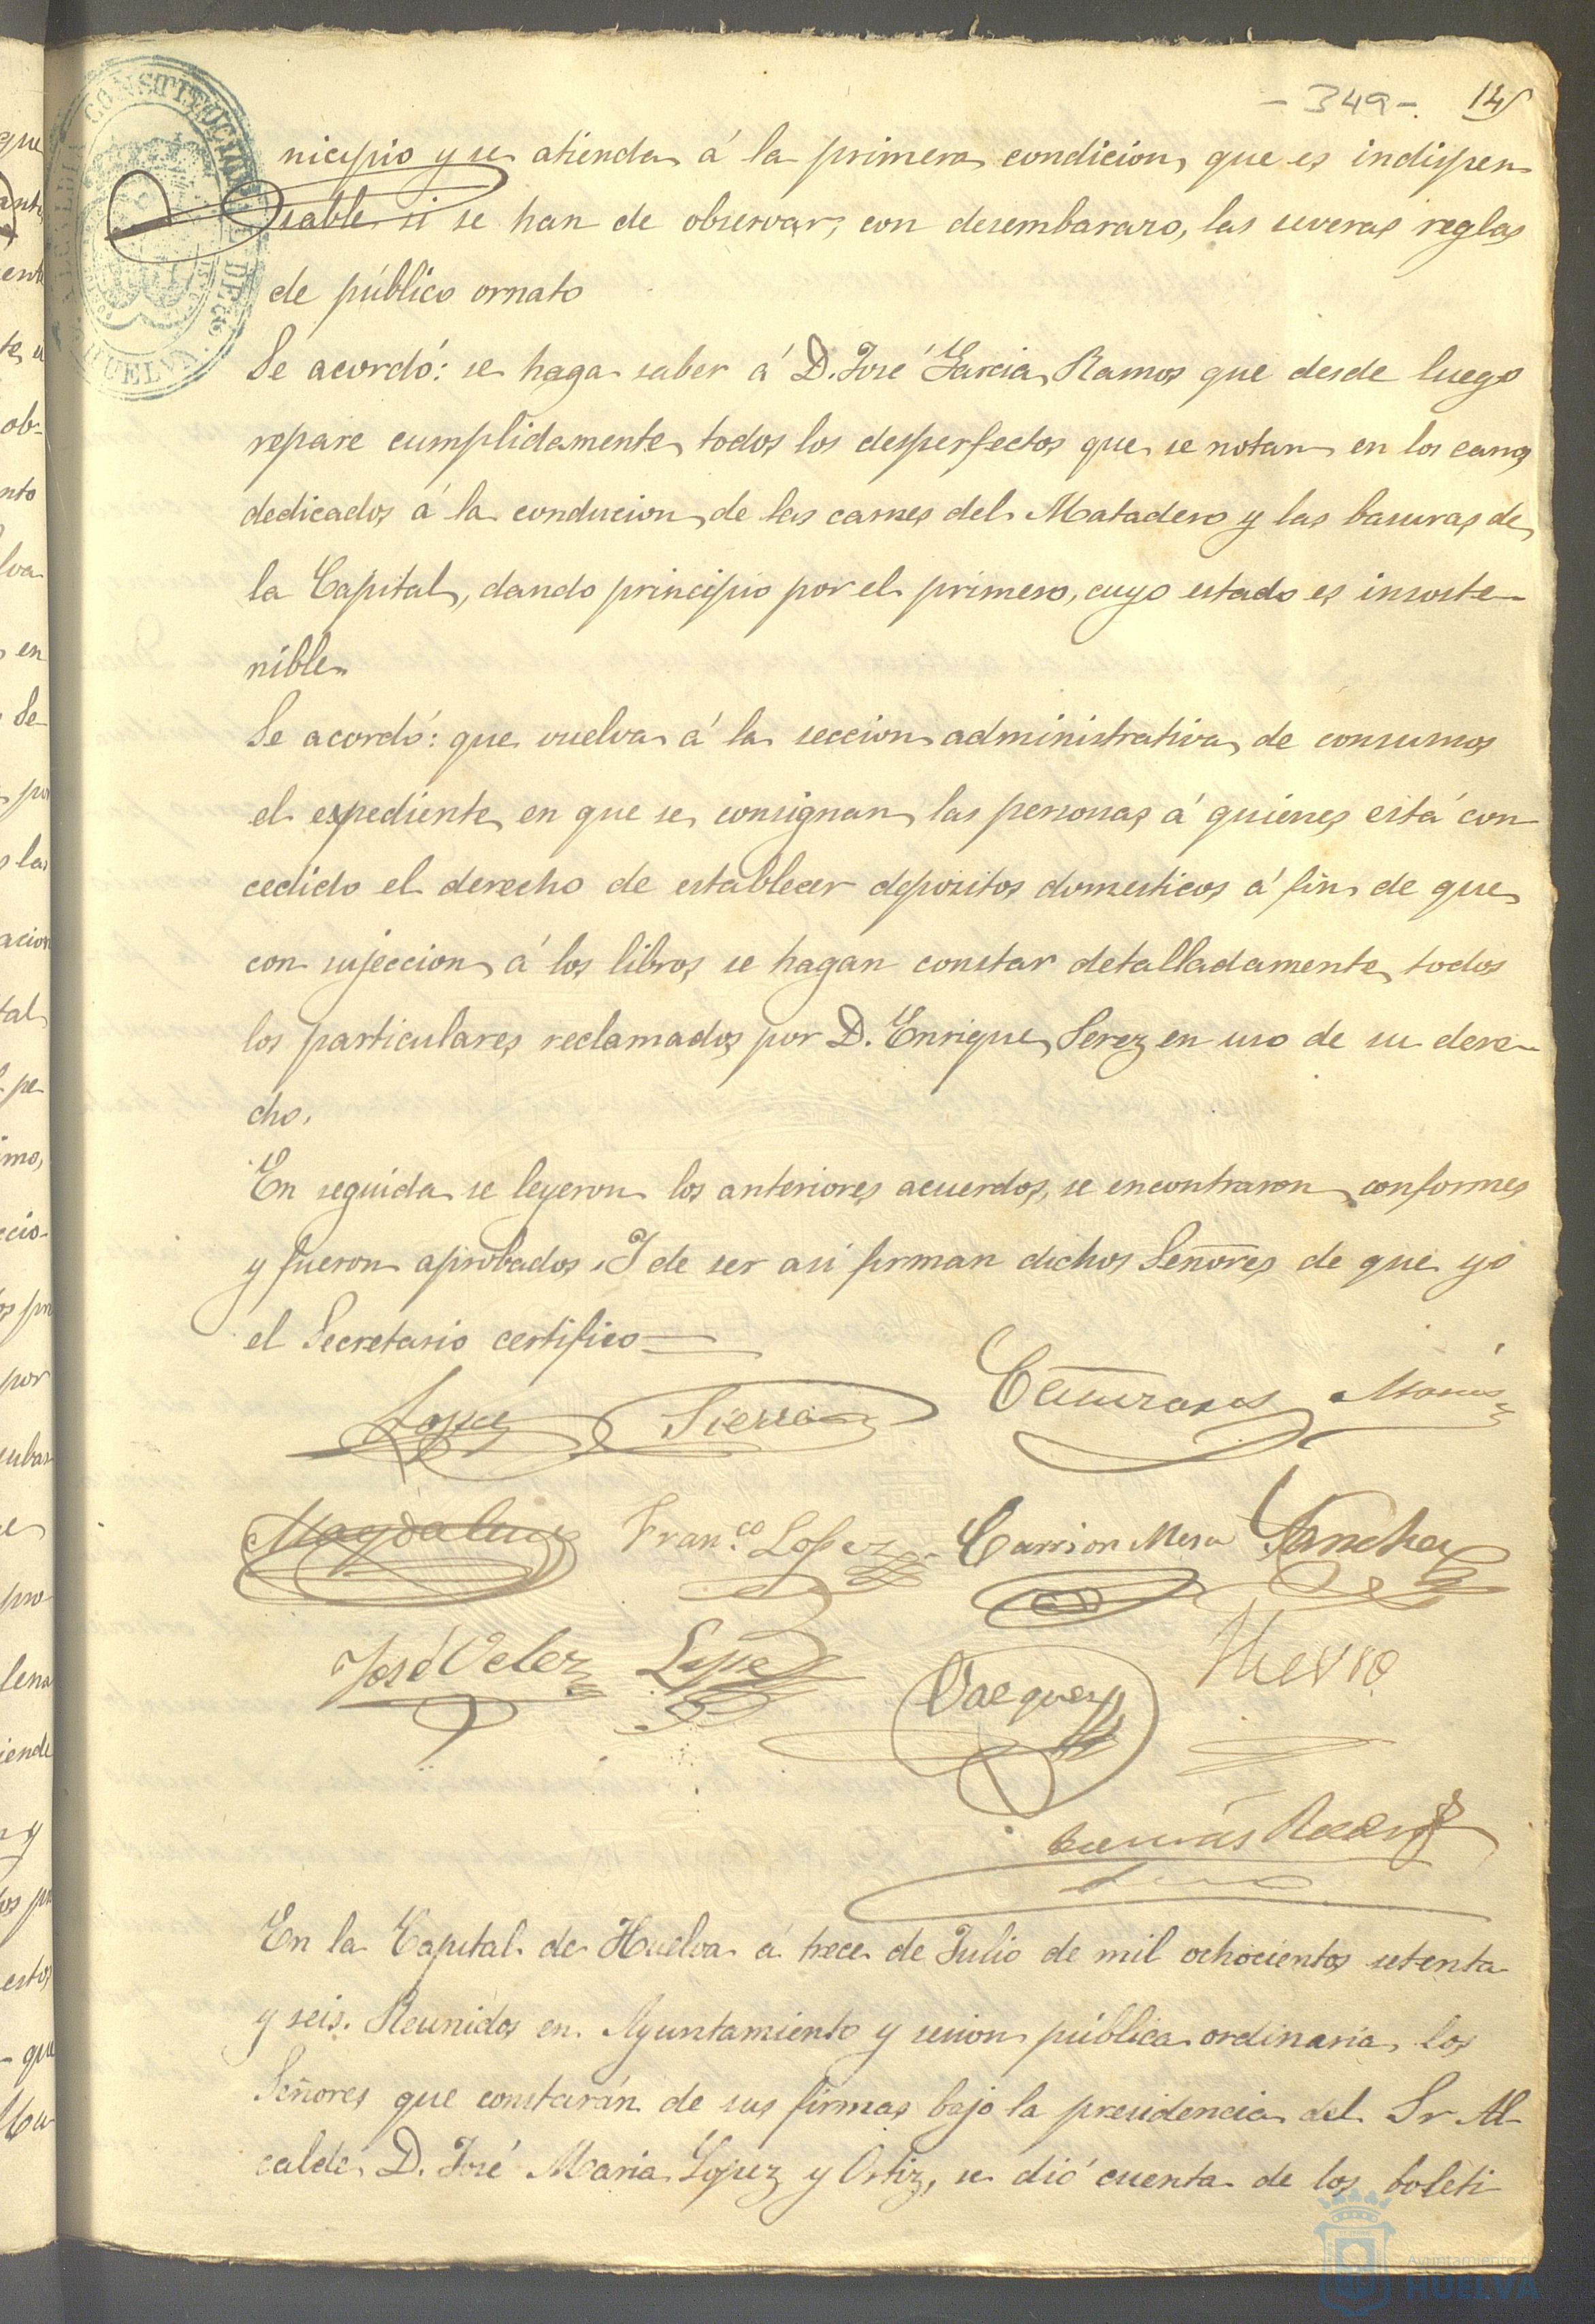 - 349 -. 145
nicipio y se atienda á la primera condicion, que es indispen
sable si se han de observar, con desembarazo, las severas reglas
de público ornato
Se acordó: se haga saber á D. José Garcia Ramos que desde luego
repare cumplidamente todos los desperfectos que se notan en los carros
dedicados á la conducion de las carnes del Matadero y las basuras de
la Capital, dando principio por el primero, cuyo estado es insoste-
nible.
Se acordó: que vuelva á la seccion administrativa de consumos
el expediente en que se consignan las personas á quienes está con
cedido el derecho de establecer depositos domesticos á fin de que
con sujeccion á los libros se hagan constar detalladamente todos
los particulares reclamados por D. Enrique Serez en uso de su dere-
cho.
En seguida se leyeron los anteriores acuerdos, se encontraron conformes
y fueron aprobados. Y de ser asi firman dichos Señores de que yo
el Secretario certifico
Lopez Sierra
Magdaleno Franco Lopez Carrion Mesa Sanchez
José Velez Lopez Vazquez Hierro
En la Capital de Huelva á trece de Julio de mil ochocientos setenta
y seis. Reunidos en Ayuntamiento y sesion pública ordinaria los
Señores que constarán de sus firmas bajo la presidencia del Sr Al-
calde D. José Maria Lopez y Ortiz, se dió cuenta de los boleti
CONSTITUCIONAL DE
HUELVA
Ayuntamiento de
HUELVA